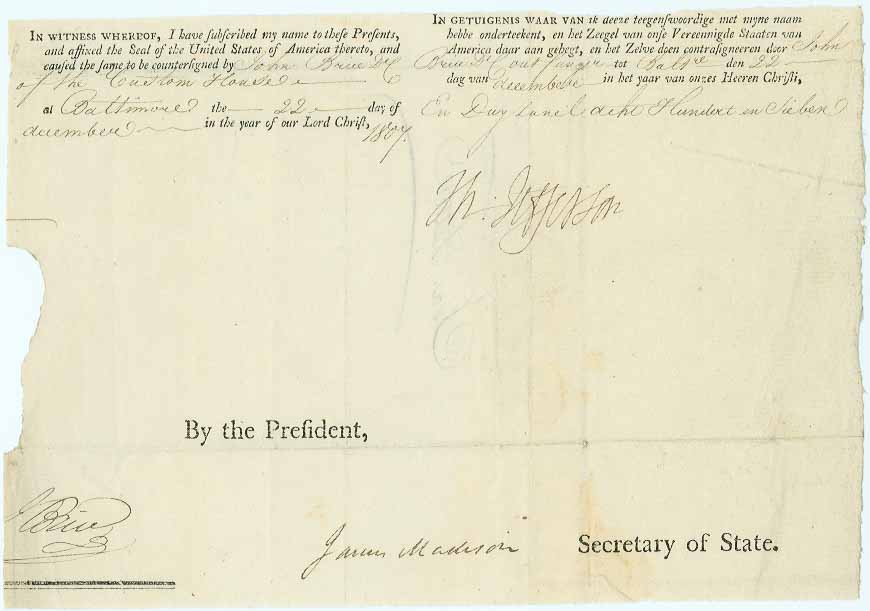 IN WITNESS WHEREOF, I have ſubſcribed my name to theſe Preſents,
and affixed the Seal of the United States of America thereto, and
cauſed the ſame to be counterſigned by John Brice
of the Custom House
at Baltimore the 22 day of
december in the year of our Lord Chriſt, 1807.
IN GETUIGENIS WAAR VAN ik deeze teegenſwoordige met myne naam
hebbe onderteekent, en het Zeegel van onſe Vereennigde Staaten van
America daar aan gehegt, en het Zelve doen contraſigneeren door John
Brice tot Baltre den 22
dag van decembere in het yaar van onzes Heeren Chriſti,
En Duy acht Hundert en Sieben
Th: Jefferson
By the Preſident,
JBrice
James Madison
Secretary of State.